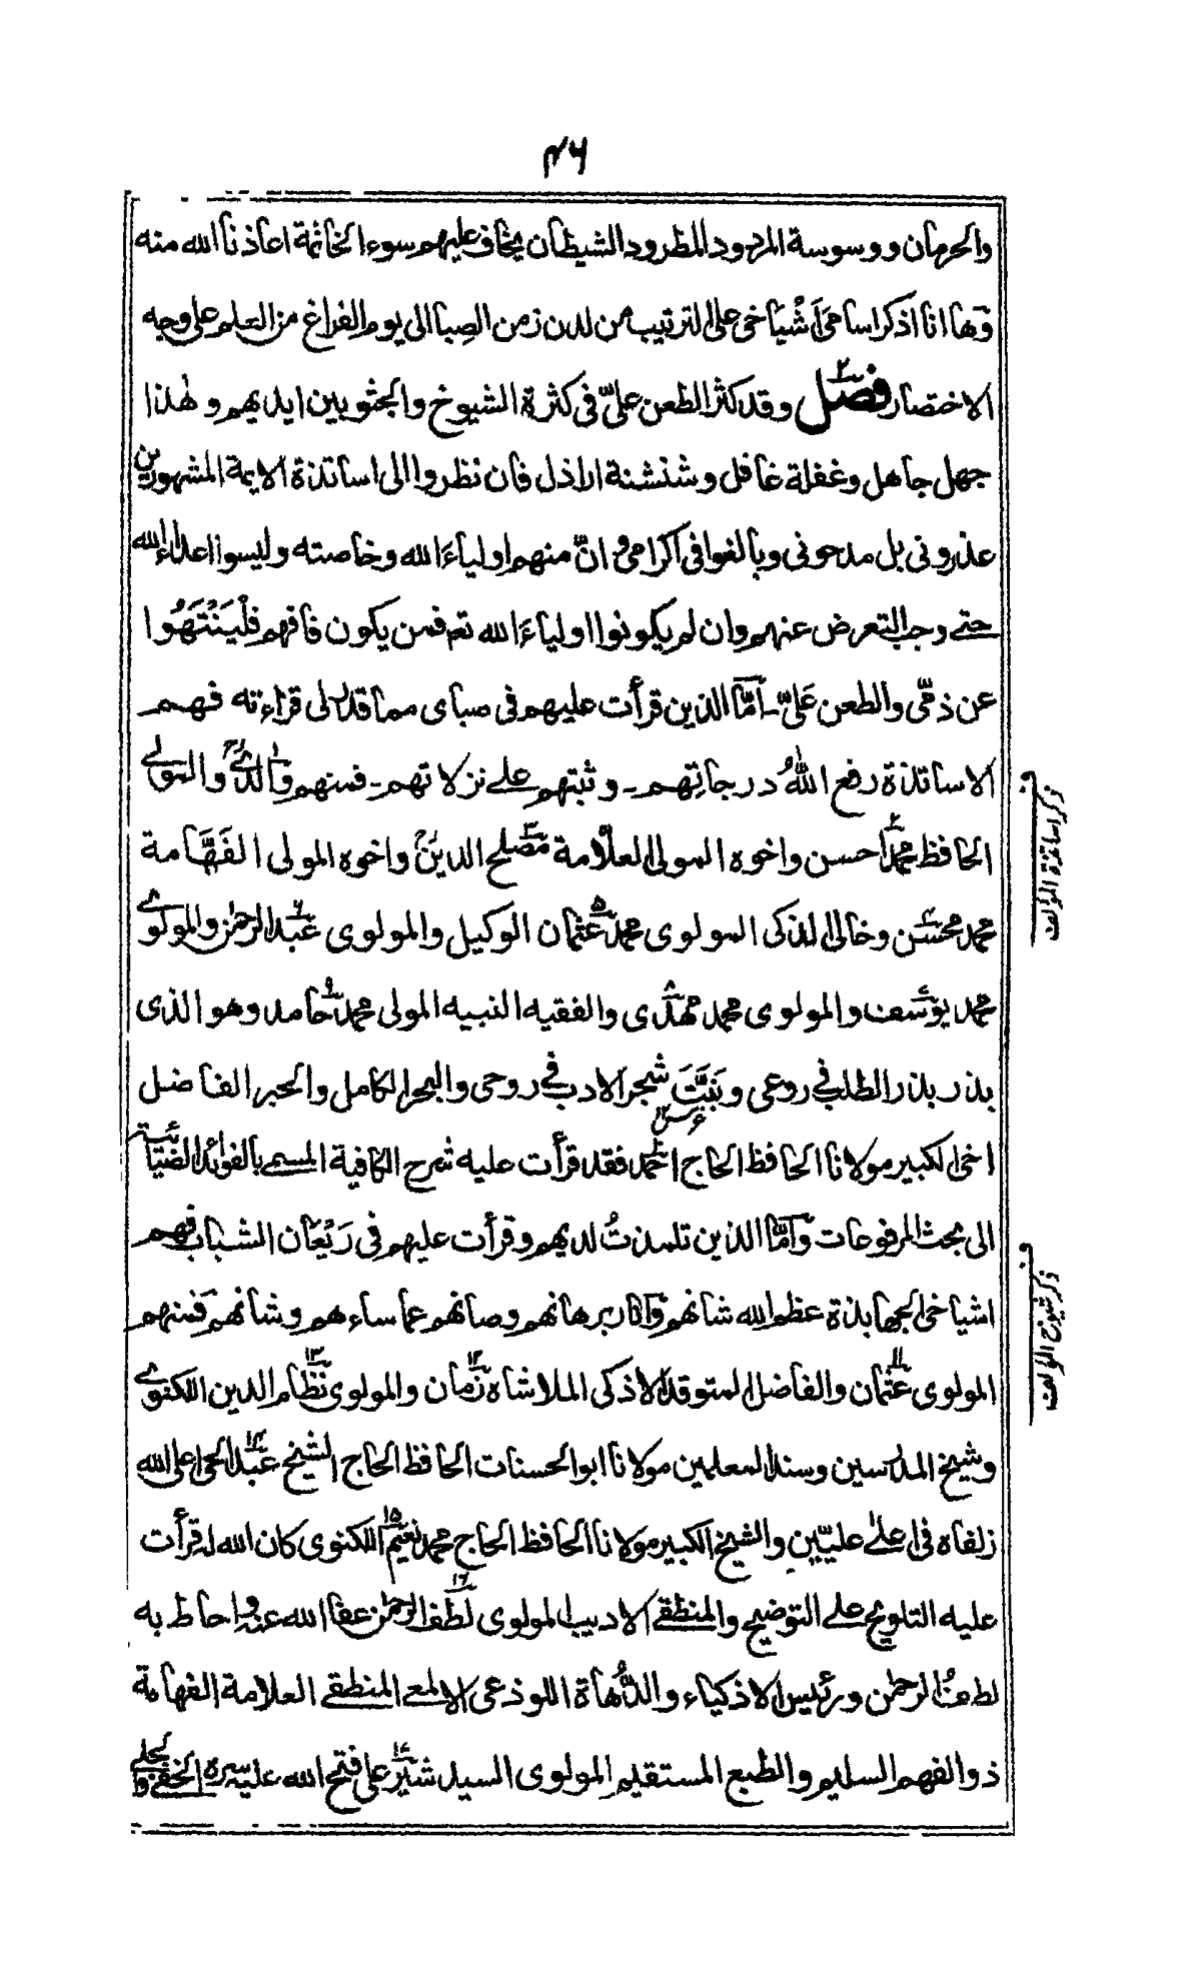 ۴۶
والحرمان ووسوسة المردود المطرود الشيطان يخاف عليهم سوء الخاتمة اعاذنا الله منه
وها انا اذكر اسامى اَشْيَاخى على الترتيب من لدن زمن الصبا الى يوم الفراغ من التعلم على وجه
الاختصار فصل وقد كثر الطعن علىّ فى كثرة الشيوخ والجثو بين ايديهم وهٰذا
جهل جاهل وغفلة غافل وشنشنة الاراذل فان نظروا الى اساتذة الايمة المشهورين
عذرونى بل مدحونى وبالغوا فى اكرامى و انّ منهم اولياءَ الله وخاصته وليسوا اعداء الله
حتے وجب التعرض عنهم وان لم يكونوا اولياءَ الله تعـ فمن يكون فافهم فلْيَنْتَهُوا
عن ذمّى والطعن عَلَىّ ـ اَمّا الذين قرأت عليهم فى صباى مما قدر لى قراءته فهم
الاساتذة رفع اللهُ درجاتِهم ـ وثبتهم علے نزلاتهم ـ فمنهم والدىؒ والمولے
الحافظ محمد احسن ۲ واخوه المولى العلّامة مصلح الدين ۳ واخوه المولى الفَهَّامة
محمد محسن ۴ وخالى الذكى المولوى محمد عثمان ۵ الوكيل والمولوى عبد الرحمٰن ۶ والمولوے
محمد يوسف ۷ والمولوى محمد مهدى ۸ والفقيه النبيه المولى محمد حامد ۹ وهو الذى
بذر بذر الطلب فے روعى ونَبَّتَ شجر الادب فے روحى والبحر الكامل والحبر الفاضل
اخى الكبير مولانا الحافظ الحاج احمد فقد قرأت عليه شرح الكافية المسمے بالفوائد الضيائية
الى بحث المرفوعات وَاَمّا الذين تلمذتُ لديهم وقرأت عليهم فى رَيْعَان الشباب فهم
اشياخى الجهابذة عظم الله شانهم وانار برهانهم وصانهم عما ساءهم وشانهم فمنهم
المولوى عثمان ۱۱ والفاضل المتوقد الاذكى الملا شاه زمان ۱۲ والمولوى نظام الدين ۱۳ اللكنوے
وشيخ المدرسين وسند المعلمين مولانا ابو الحسنات الحافظ الحاج الشيخ عبد الحى ۱۴ اعلى الله
زلفاه فى اعلےٰ عليّين والشيخ الكبير مولانا الحافظ الحاج محمد نعيم ۱۵ اللكنوى كان الله له قرأت
عليه التلويح علے التوضيح والمنطقے الاديب المولوى لطف الرحمٰن ۱۶ عفا الله عنه واحاط به
لطفُ الرحمٰن ورئيس الاذكياء والدُّهاة اللوذعى الالمعے المنطقے العلامة الفهامة
ذو الفهم السليم والطبع المستقيم المولوى السيد شير على ۱۷ فتح الله عليه سره الخفے والجلے
ذكر اساتذة المؤلف
ذكر شيوخ المؤلف